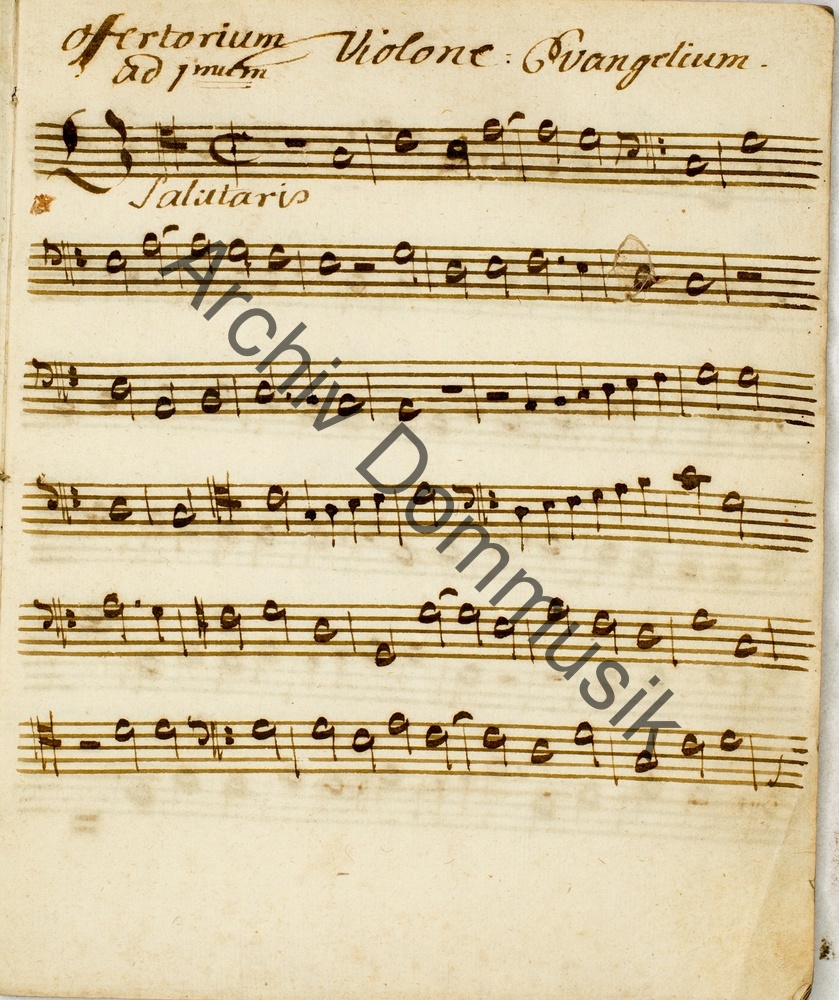 Offertorium Violone: Evangelium.
ad 1mum
Salutaris
Archiv Dommusik